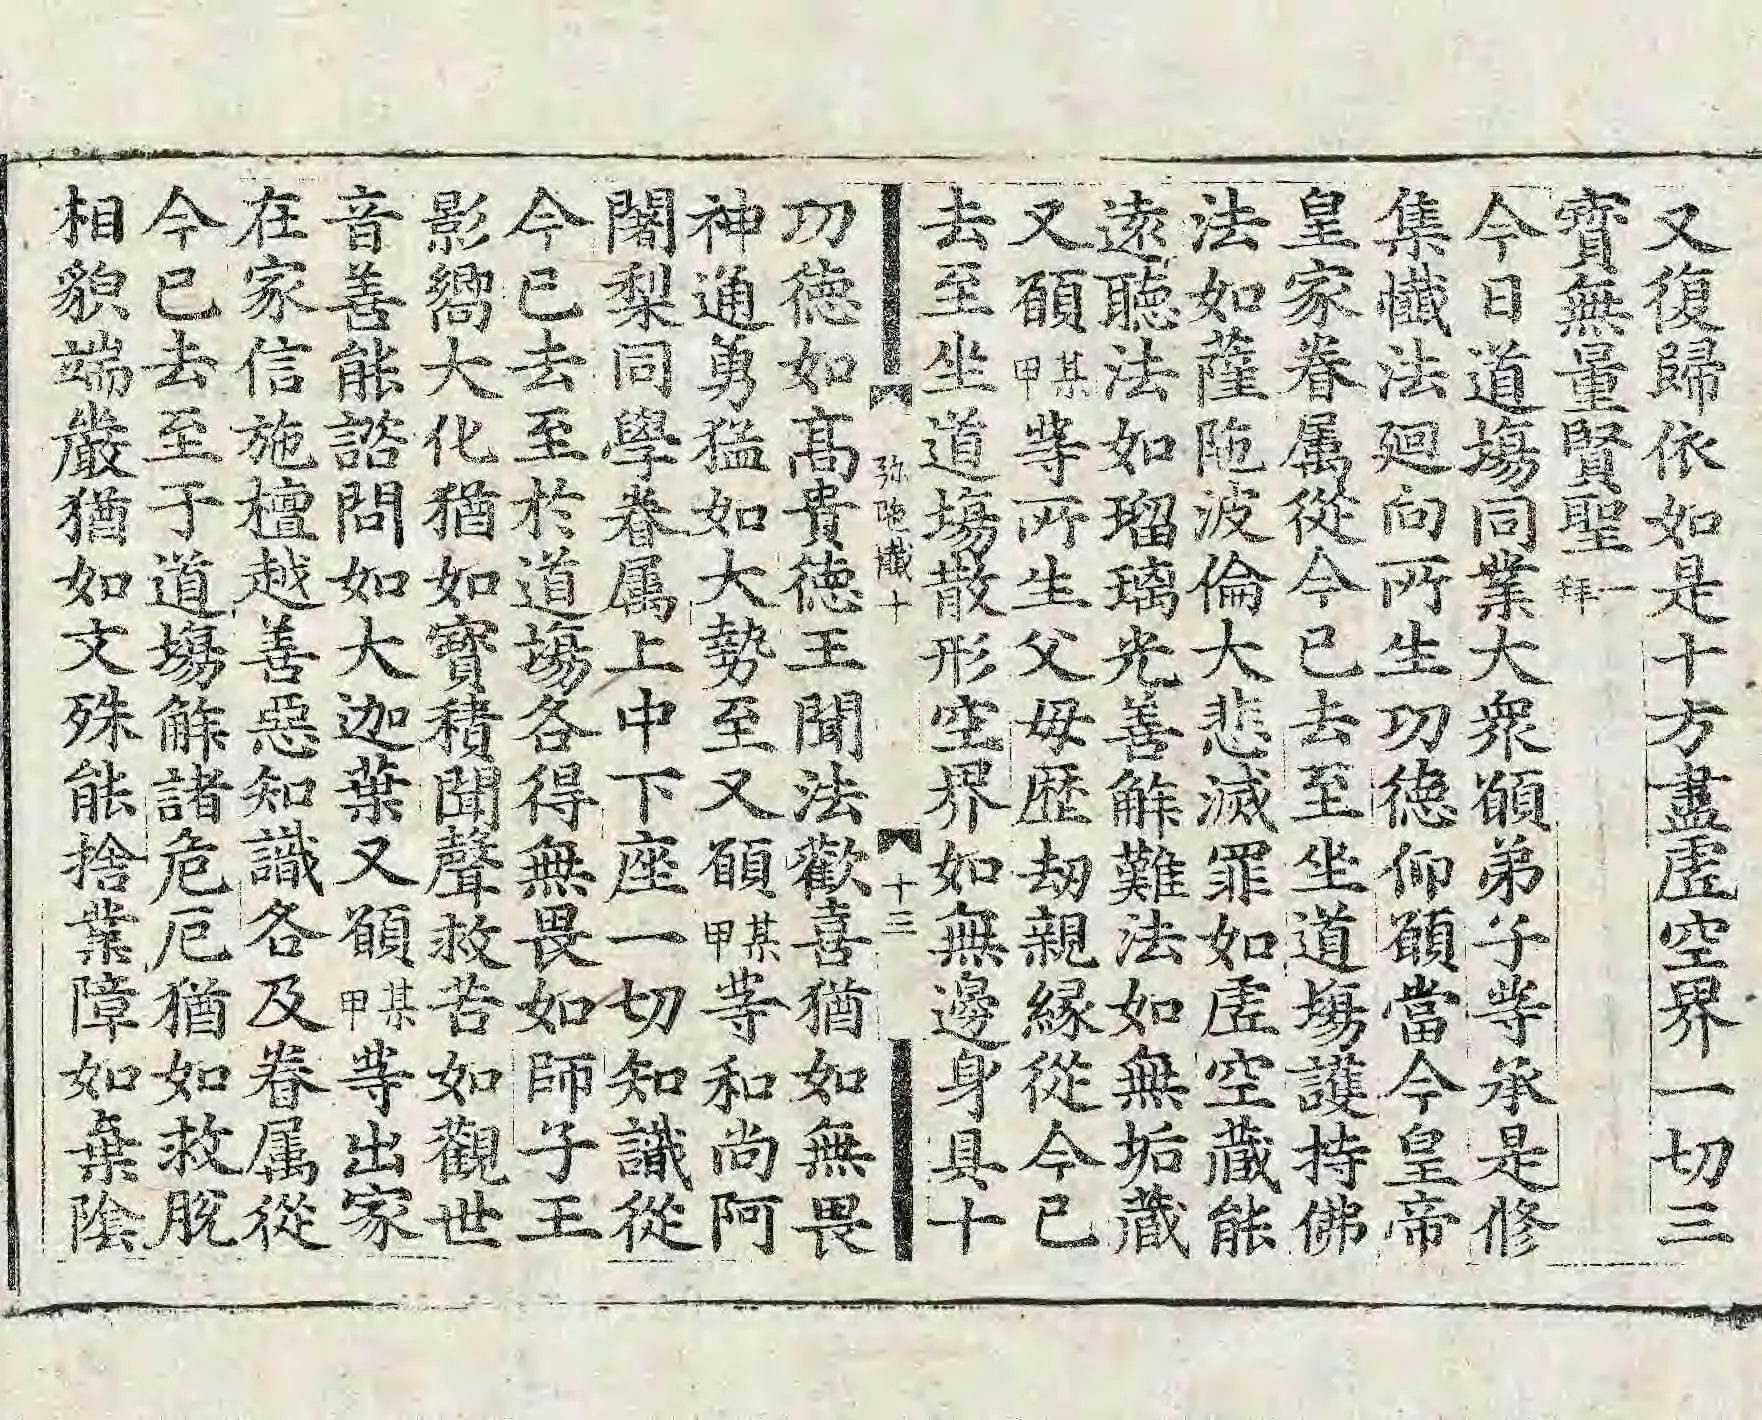 又復歸依如是十方盡虗空界一切三
寶無量賢聖一拜
今日道塲同業大衆願弟子等承是修
集懺法廻向所生功德仰願當今皇帝
皇家眷属從今已去至坐道塲護持佛
法如薩陁波倫大悲滅罪如虗空藏能
遠聽法如瑠璃光善解難法如無垢藏
又願某甲等所生父母歴劫親縁從今已
去至坐道塲散形空界如無邊身具十
弥陁懺十 十三
功德如髙貴德王聞法歡喜猶如無畏
神通勇猛如大勢至又願某甲等和尚阿
闍梨同學眷属上中下座一切知識從
今已去至於道塲各得無畏如師子王
影嚮大化猶如寶積聞聲救苦如觀世
音善能諮問如大迦葉又願某甲等出家
在家信施檀越善惡知識各及眷属從
今已去至于道塲解諸危厄猶如救脫
相貌端嚴猶如文殊能捨業障如棄陰